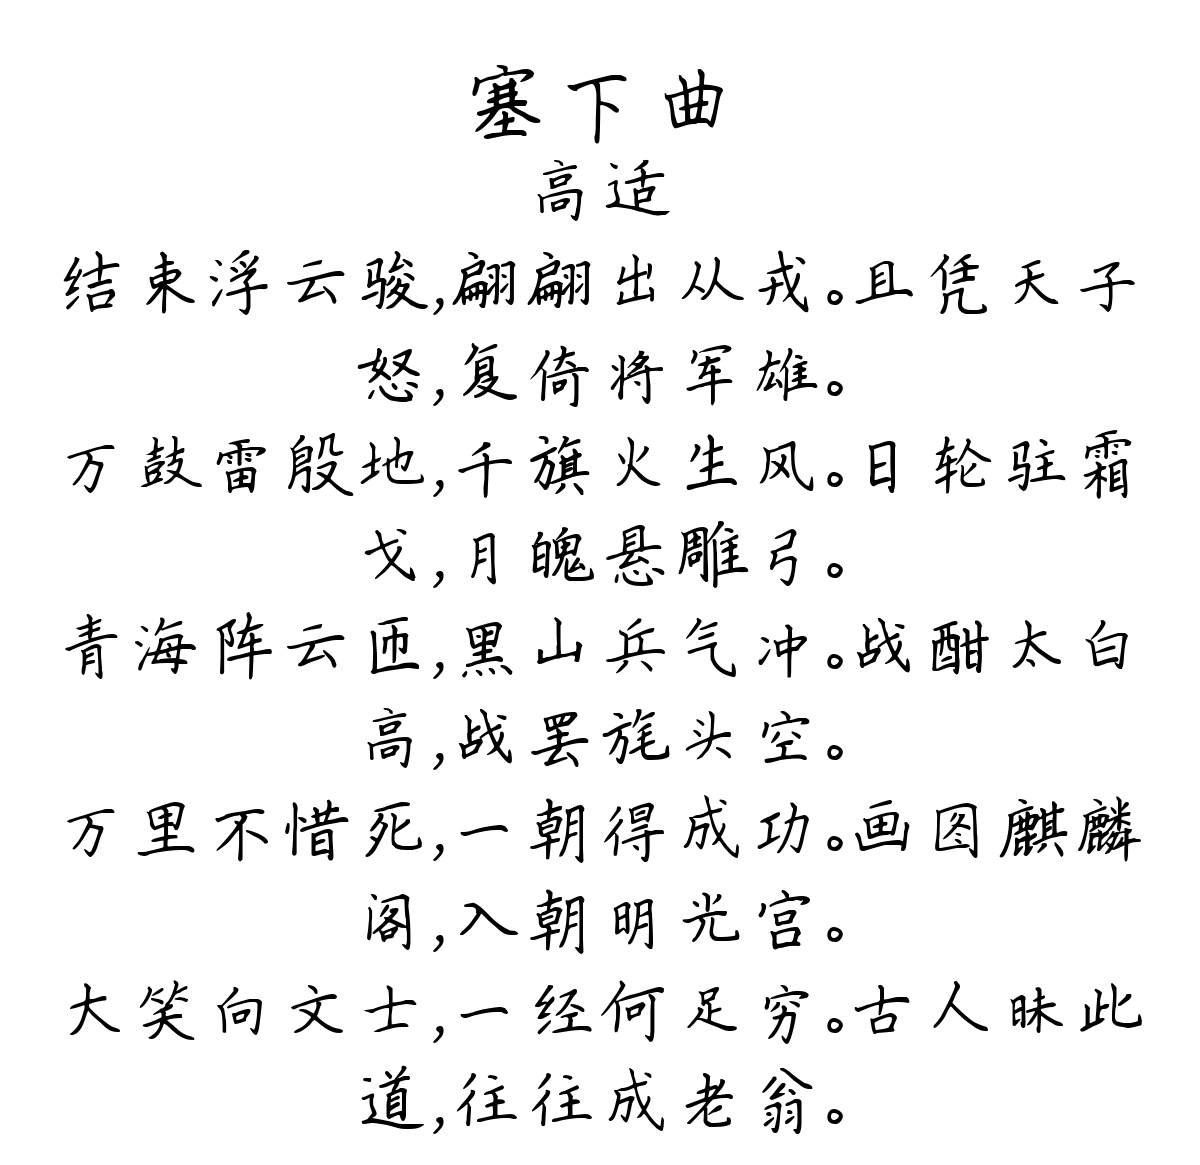 塞下曲
高适
结束浮云骏,翩翩出从戎。且凭天子
怒,复倚将军雄。
万鼓雷殷地,千旗火生风。日轮驻霜
戈,月魄悬雕弓。
青海阵云匝,黑山兵气冲。战酣太白
高,战罢旄头空。
万里不惜死,一朝得成功。画图麒麟
阁,入朝明光宫。
大笑向文士,一经何足穷。古人昧此
道,往往成老翁。